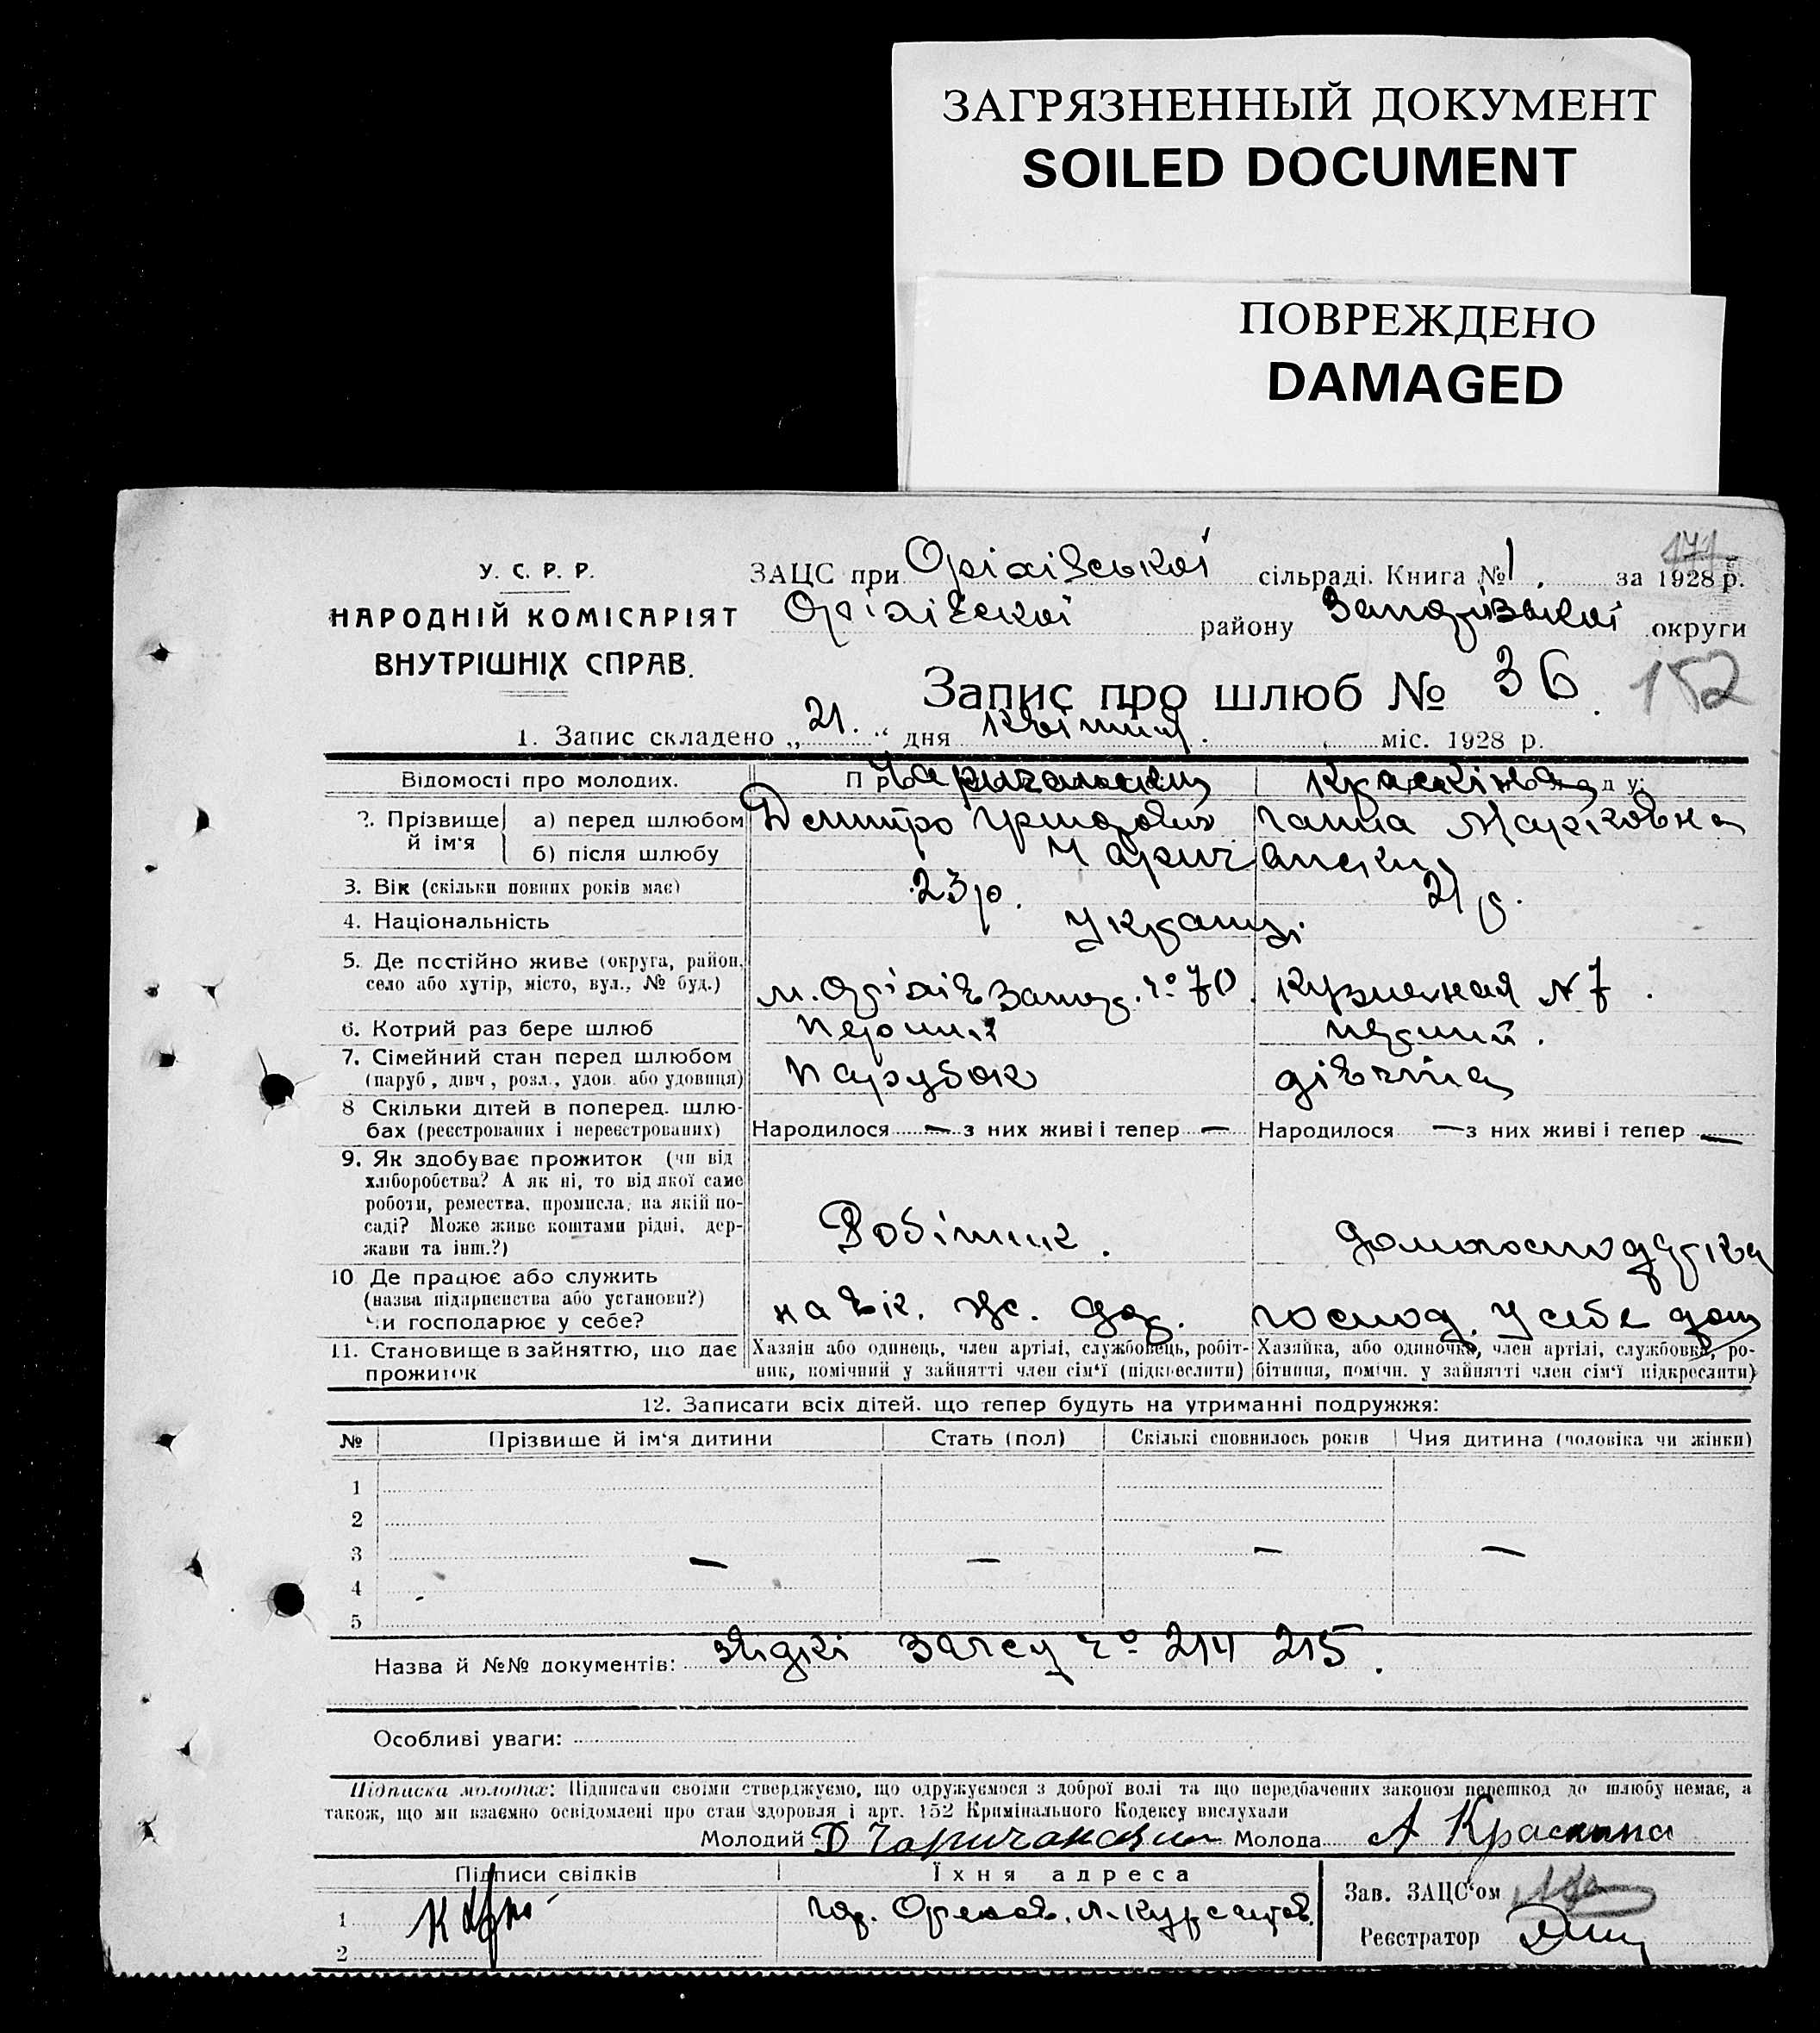 ЗАГРЯЗНЕННЫЙ ДОКУМЕНТ
SOILED DOCUMENT
ПОВРЕЖДЕНО
DAMAGED
171
У. С. Р. Р.
НАРОДНІЙ КОМІСАРІЯТ
ВНУТРІШНІХ СПРАВ.
ЗАЦС при Оріхівської сільраді. Книга № 1. за 1928 р.
Оріхівскої району Запорізької округи
Запис про шлюб № 36. 152
1. Запис складено „21.“ дня Квітня. міс. 1928 р.
Відомості про молодих.
Чаричанский Краскіна
2. Прізвище й ім'я
а) перед шлюбом Дмитро Григорович Ганна Марковна
б) після шлюбу Чаричански
3. Вік (скільки повних років має) 23 р. 21 р.
4. Національність Украинці
5. Де постійно живе (округа, район, село або хутір, місто, вул., № буд.) м. Оріхів Запор. № 70. Кузнечная № 7.
6. Котрий раз бере шлюб первий первий.
7. Сімейний стан перед шлюбом (паруб, дівч, розл., удов. або удовиця) парубок дівчина
8 Скільки дітей в поперед. шлюбах (реєстрованих і нереєстрованих) Народилося — з них живі і тепер — Народилося — з них живі і тепер —
9. Як здобуває прожиток (чи від хліборобства? А як ні, то від якої саме роботи, ремества, промисла, на якій посаді? Може живе коштами рідні, держави та інш.?) Робітник. домогосподарка
10 Де працює або служить (назва підприємства або установи?) Чи господарює у себе? на Єк. жс. дор. господ. у себе дома
11. Становище в зайняттю, що дає прожиток
Хазяїн або одинець, член артілі, службовець, робітник, помічний у зайнятті член сім'ї (підкреслити)
Хазяйка, або одиночка, член артілі, службовка, робітниця, помічн. у зайнятті член сім'ї підкреслити)
12. Записати всіх дітей, що тепер будуть на утриманні подружжя:
№ Прізвище й ім'я дитини Стать (пол) Скількі сповнилось років Чия дитина (чоловіка чи жінки)
1
2
3 — — — —
4
5
Назва й №№ документів: загсу № 214 215.
Особливі уваги:
Підписка молодих: Підписами своїми стверджуємо, що одружуємося з доброї волі та що передбачених законом перешкод до шлюбу немає, а
також, що ми взаємно освідомлені про стан здоровля і арт. 152 Кримінального Кодексу вислухали
Молодий Д Чаричанский Молода А Краскина
Підписи свідків Їхня адреса Зав. ЗАЦС'ом
1 гор. Орехов, Курсантов. Реєстратор
2